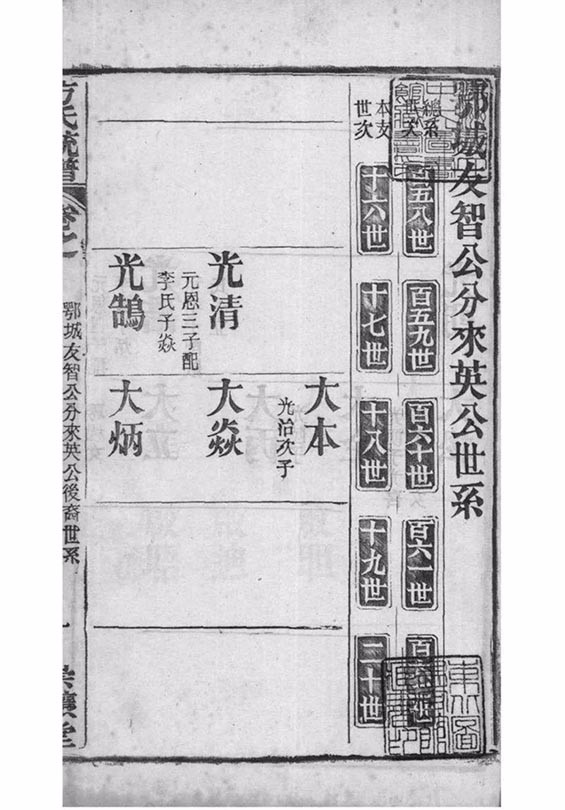 鄂城友智公分來英公世系
總系世次
百五八世
百五九世
百六十世
百六一世
本支世次
十六世
十七世
十八世
十九世
二十世
大本
光治次子
光清
元恩三子配
李氏子焱
大焱
光鵠
大炳
方氏統譜
卷之一
鄂城友智公分來英公後裔世系